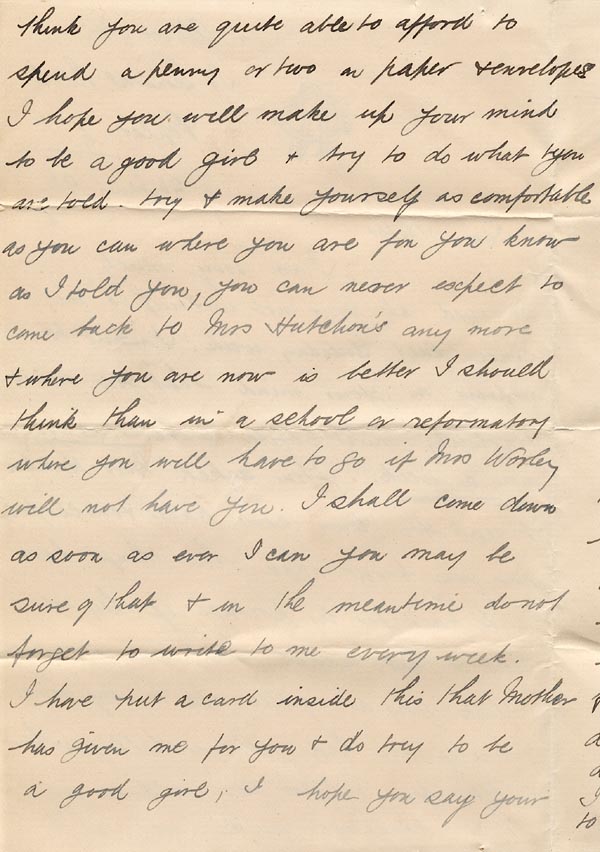 think you are quite able to afford to
spend a penny or two on paper & envelopes
I hope you will make up your mind
to be a good girl & try to do what you
are told. try & make yourself as comfortable
as you can where you are for you know
as I told you, you can never expect to
come back to Mrs Hutchon's any more
& where you are now is better I should
think than in a school or reformatory
where you will have to go if Mrs Worley
will not have you. I shall come down
as soon as ever I can you may be
sure of that & in the meantime do not
forget to write to me every week.
I have put a card inside this that Mother
has given me for you & do try to be
a good girl, I hope you say your
to